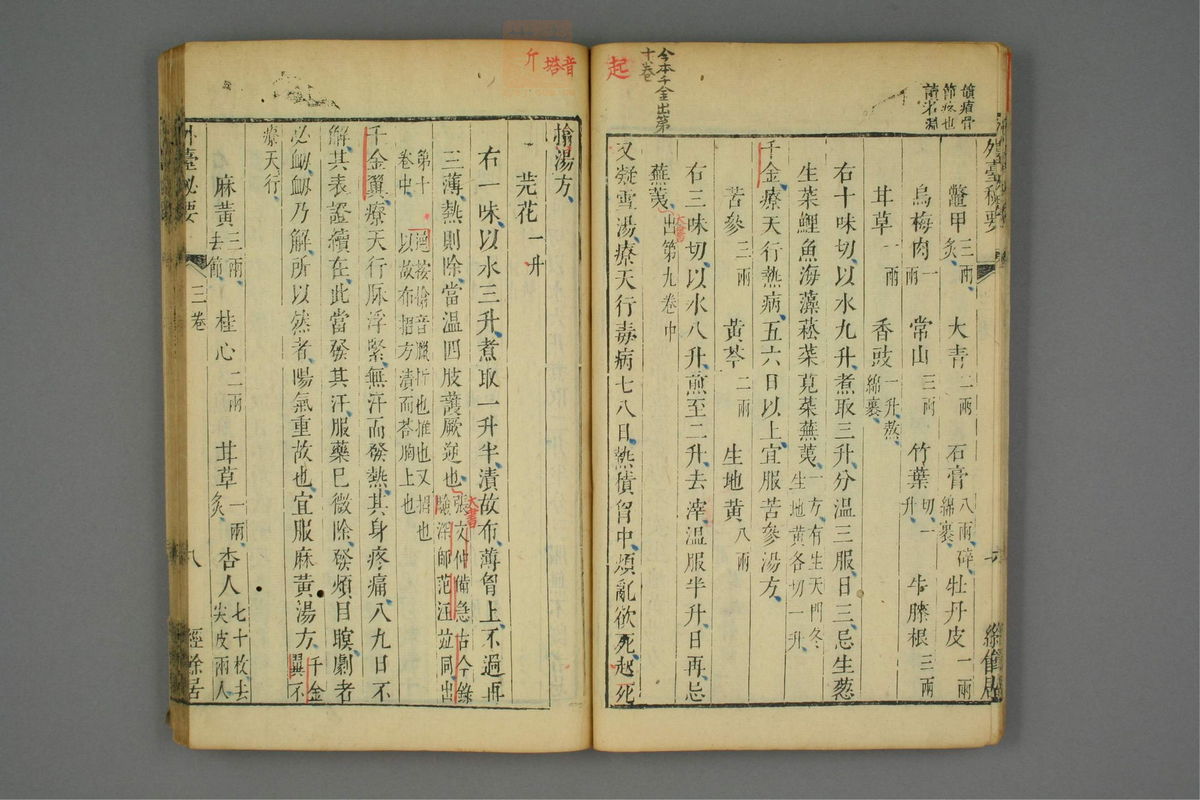 外臺秘要
鼈甲三兩炙 大青二兩 石膏八兩碎綿裹 牡丹皮一兩
烏梅肉一兩 常山三兩 竹葉切一升 牛膝根三兩
甘草一兩 香豉一升熬綿裹
右十味切以水九升煮取三升分温三服日三忌生葱
生菜鯉魚海藻菘菜莧菜蕪荑一方有生天門冬生地黄各切一升
千金療天行熱病五六日以上宜服苦參湯方
苦參三兩 黄芩二兩 生地黄八兩
右三味切以水八升煎至二升去滓温服半升日再忌
蕪荑出第九卷中
又凝雪湯療天行毒病七八日熱積胷中煩亂欲死起死
今本千金出第
十卷
起
音
塔
斤
搶湯方
芫花一升
右一味以水三升煮取一升半漬故布薄胷上不過再
三薄熱則除當温四肢護厥逆也張文仲備急古今錄驗深師范汪並同出
第十卷中
大書
大書
千金翼療天行脉浮緊無汗而發熱其身疼痛八九日不
解其表證續在此當發其汗服藥已微除發煩目瞑劇者
必衂衂乃解所以然者陽氣重故也宜服麻黄湯方千金翼不
療天行
麻黄三兩去節 桂心二兩 甘草一兩炙 杏人七十枚去尖皮兩人
外臺秘要
三卷
八
經餘居